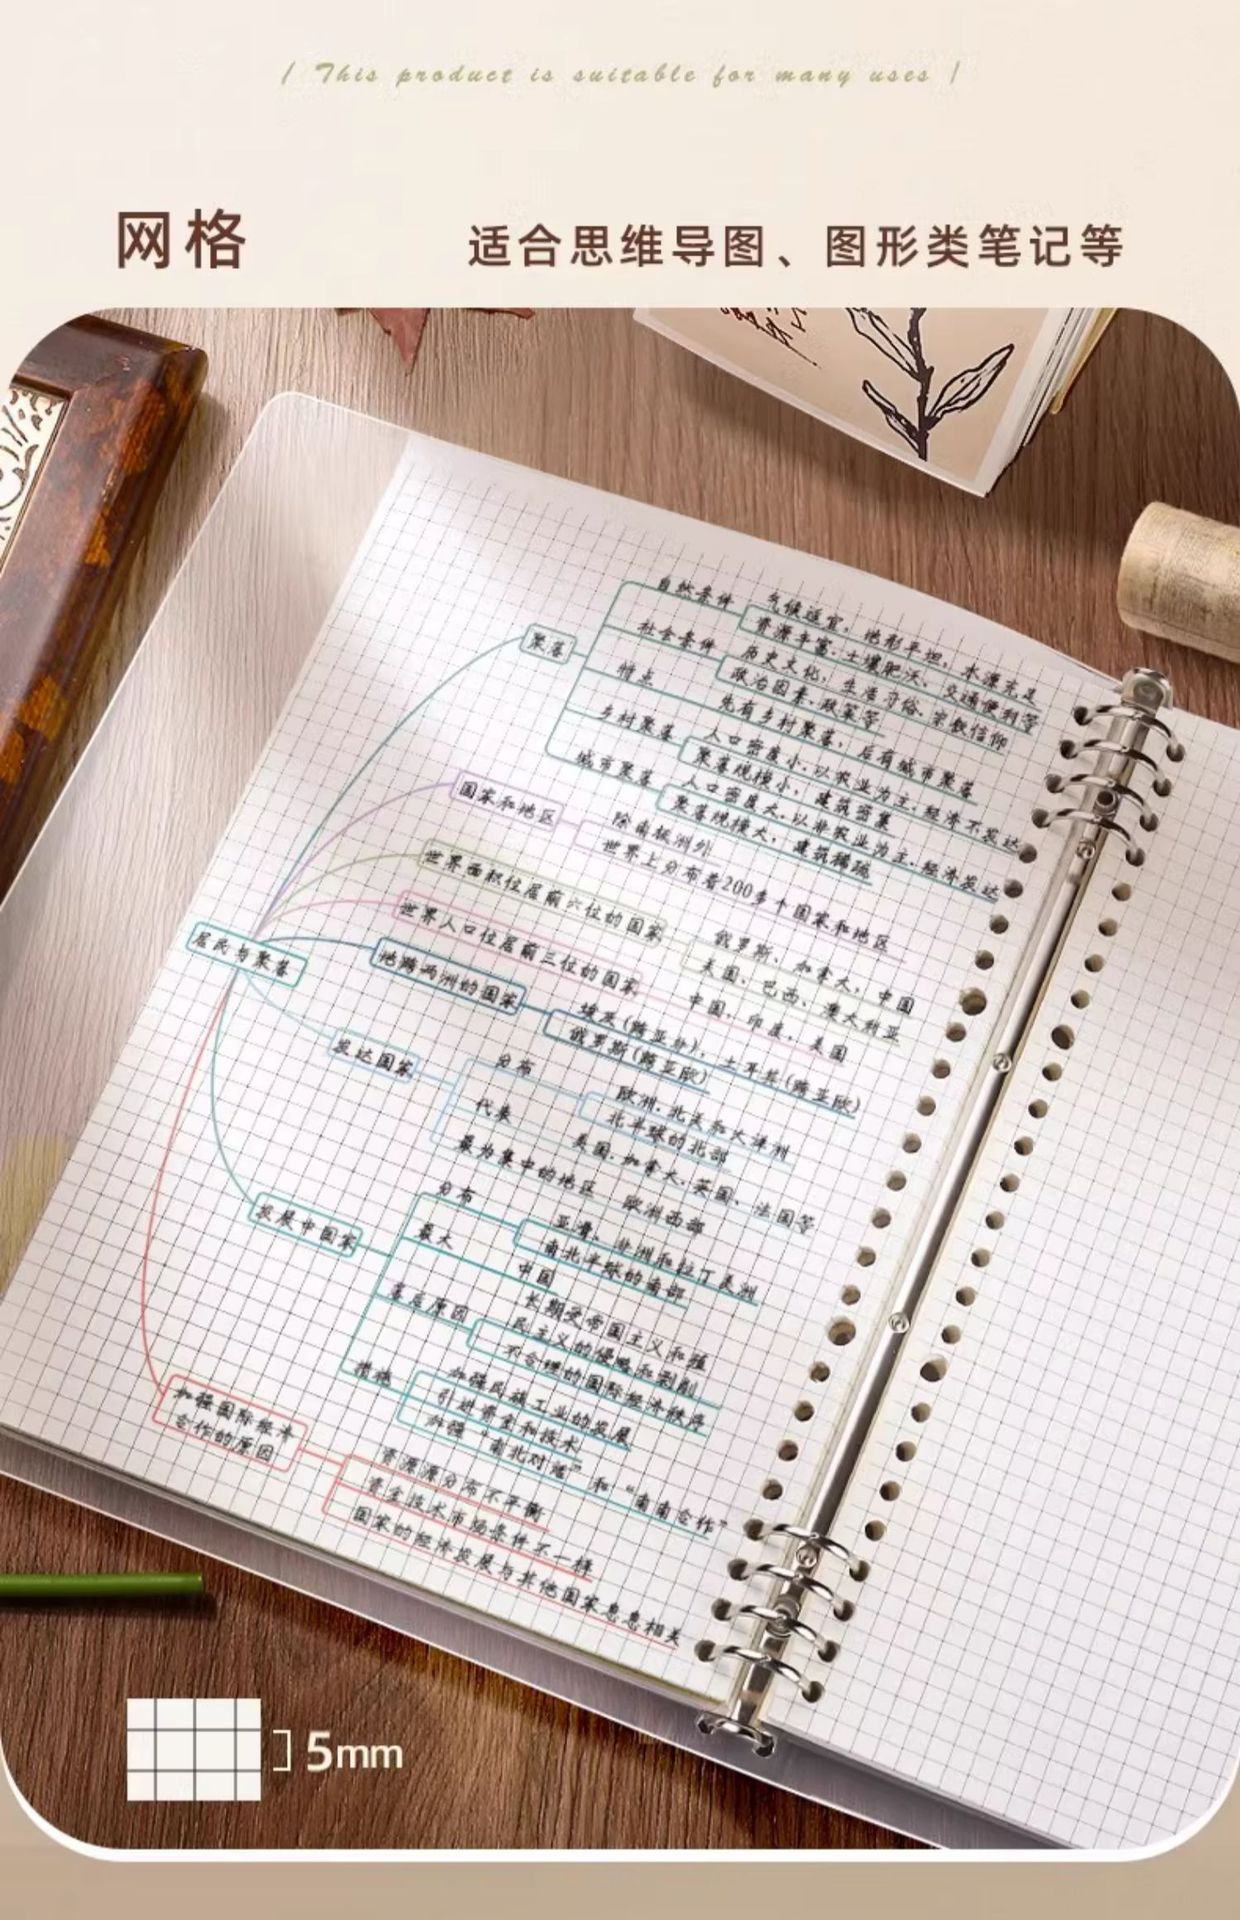 / This product is suitable for many uses /
网格
适合思维导图、图形类笔记等
居民与聚落
聚落
自然条件
气候适宜，地形平坦，水源充足
资源丰富.土壤肥沃、交通便利等
社会条件
历史文化，生活习俗.宗教信仰
政治因素.政策等
特点
先有乡村聚落，后有城市聚落
乡村聚落
人口密度小.以农业为主.经济不发达
聚落规模小，建筑密集
城市聚落
人口密度大.以非农业为主.经济发达
聚落规模大，建筑稀疏
国家和地区
除南极洲外
世界上分布着200多个国家和地区
世界面积位居前六位的国家
俄罗斯、加拿大，中国
美国、巴西、澳大利亚
世界人口位居前三位的国家
中国，印度，美国
地跨两洲的国家
埃及(跨亚非)，土耳其(跨亚欧)
俄罗斯(跨亚欧)
发达国家
分布
欧洲.北美和大洋洲
北半球的北部
代表
美国.加拿大.英国、法国等
最为集中的地区
欧洲西部
发展中国家
分布
亚非、非洲和拉丁美洲
南北半球的南部
最大
中国
落后原因
长期受帝国主义和殖
民主义的侵略和剥削
不合理的国际经济秩序
措施
加强民族工业的发展
引进资金和技术
加强“南北对话”和“南南合作”
加强国际经济
合作的原因
资源源分布不平衡
资金技术市场条件不一样
国家的经济发展与其他国家息息相关
5mm